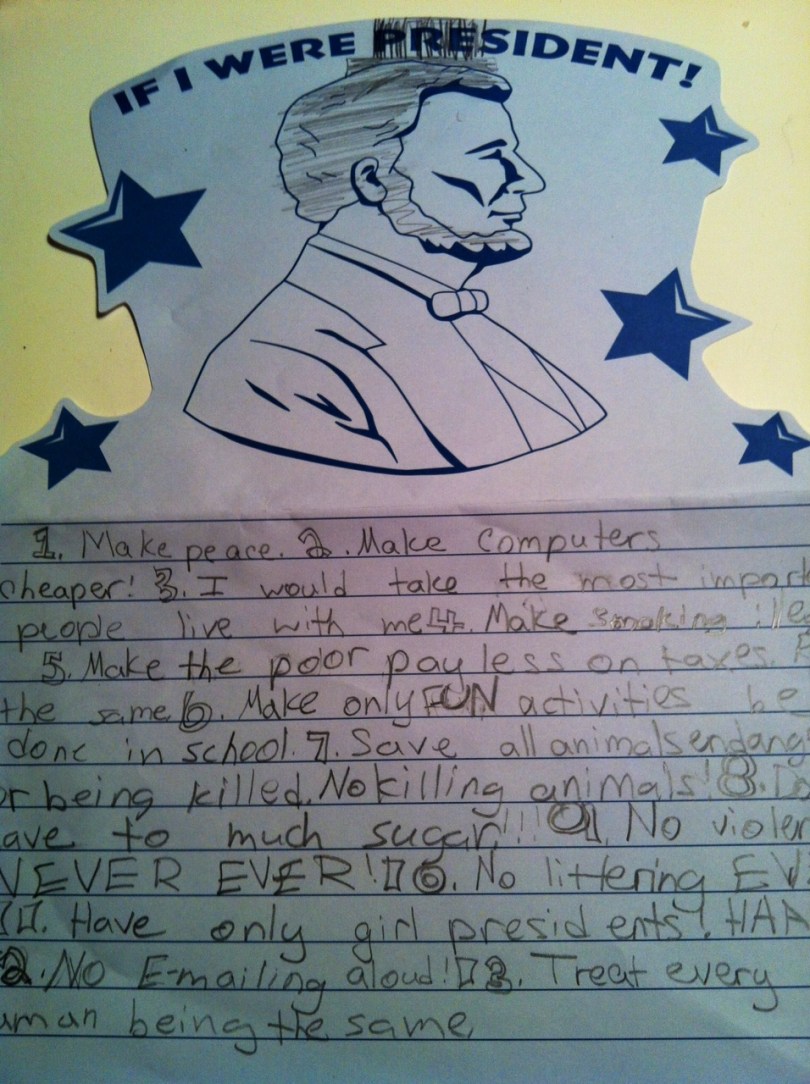 IF I WERE PRESIDENT!
1. Make peace. 2. Make Computers
cheaper! 3. I would take the most import
people live with me 4. Make smoking ille
5. Make the poor pay less on taxes.
the same 6. Make only FUN activities be
done in school. 7. Save all animals endang
or being killed. No killing animals! 8.
ave to much sugar!!! 9. No violen
NEVER EVER! 10. No littering EV
11. Have only girl presidents!. HAH
2. NO E-mailing aloud! 13. Treat every
uman being the same.